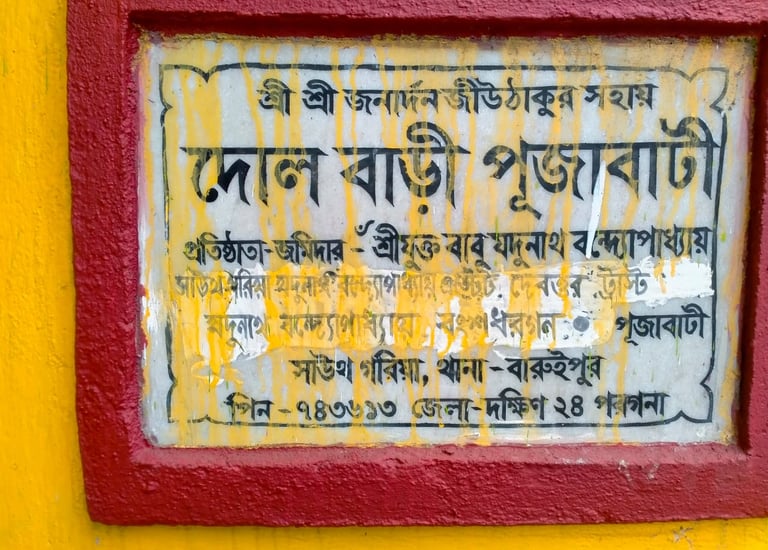 শ্রী শ্রী জনার্দন জীউঠাকুর সহায়
দোল বাড়ী পূজাবাটী
প্রতিষ্ঠাতা-জমিদার - ঁশ্রীযুক্ত বাবু যদুনাথ বন্দ্যোপাধ্যায়
সাউথ গরিয়া যদুনাথ বন্দ্যোপাধ্যায় এস্টেট দেবত্তর ট্রাস্টি
যদুনাথ বন্দ্যোপাধ্যায় বংশধরগন • পূজাবাটী
সাউথ গরিয়া, থানা - বারুইপুর
পিন - ৭৪৩৬১৩ জেলা-দক্ষিণ ২৪ পরগনা